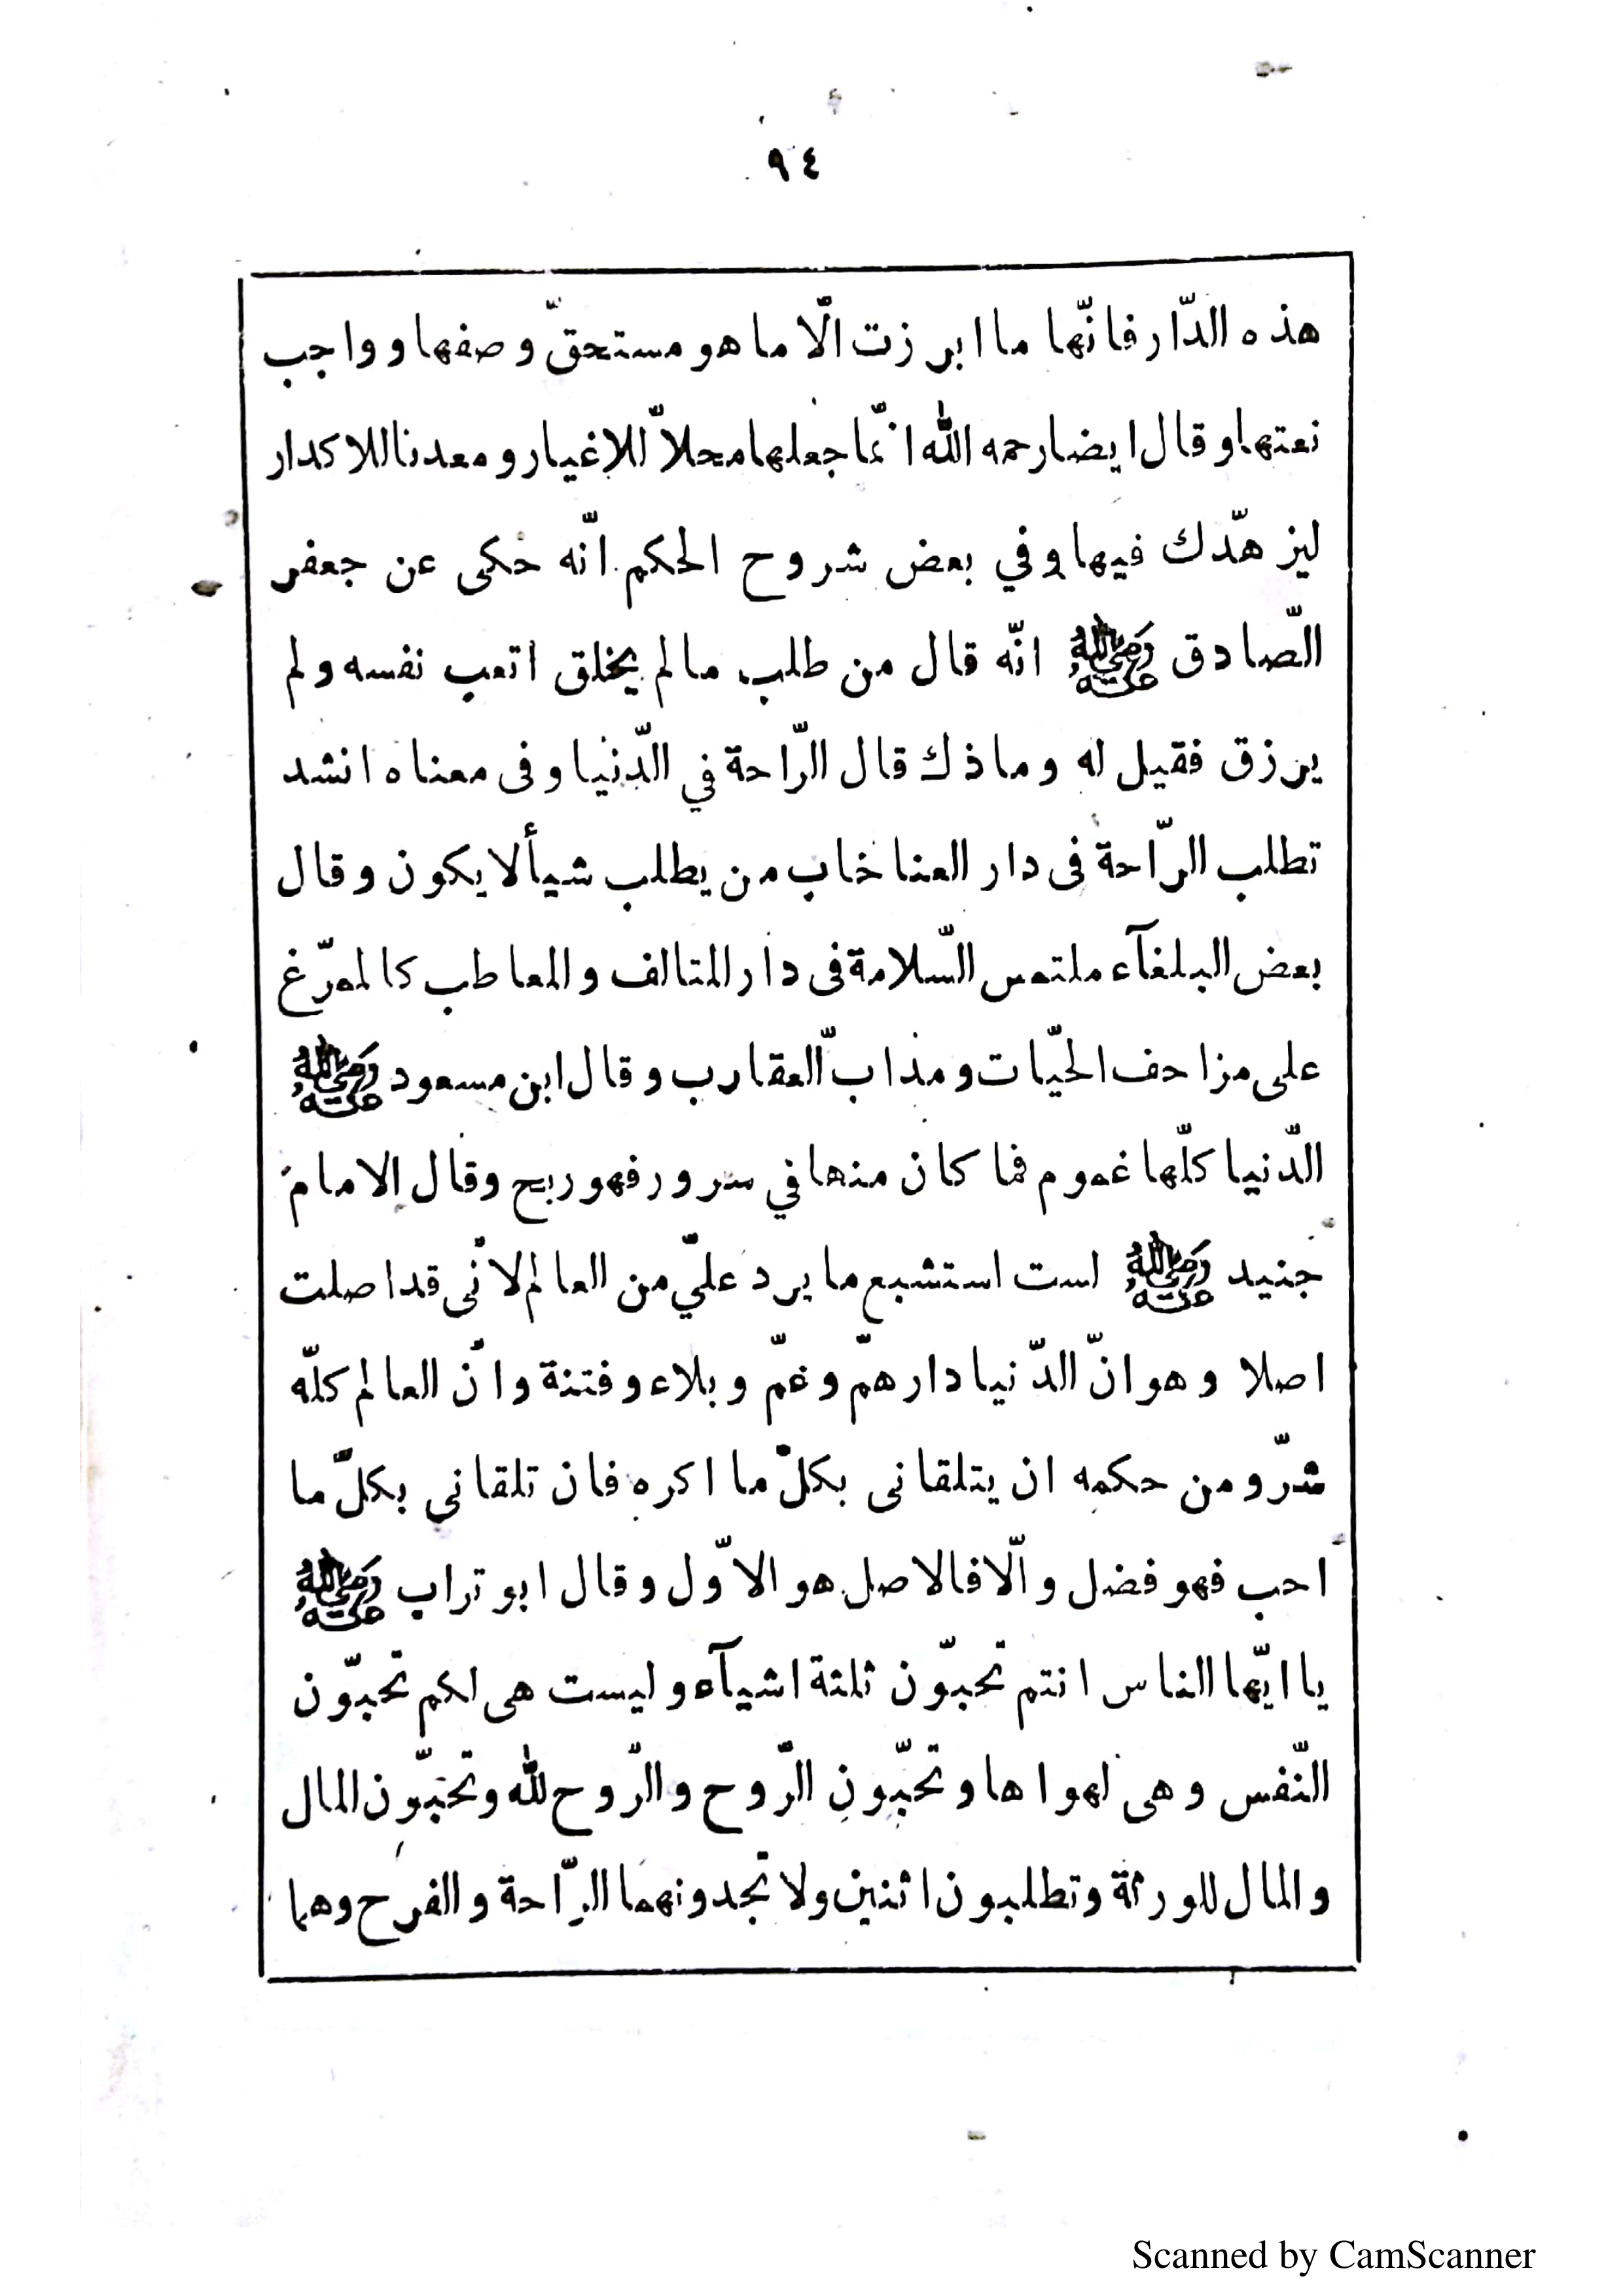 ٩٤
هذه الدّار فانّها ما ابرزت الّا ما هو مستحقّ وصفها وواجب
نعتها وقال ايضا رحمه الله انّما جعلها محلاّ للاغيار ومعدنا للاكدار
ليزهّدك فيها وفي بعض شروح الحكم انّه حكى عن جعفر
الصّادق رضي الله عنه انّه قال من طلب ما لم يخلق اتعب نفسه ولم
يرزق فقيل له وما ذك قال الرّاحة في الدّنيا وفى معناه انشد
تطلب الرّاحة فى دار العنا خاب من يطلب شيأ لا يكون وقال
بعض البلغآء ملتمس السّلامة فى دار المتالف والمعاطب كالمورّغ
على مزاحف الحيّات ومذابّ العقارب وقال ابن مسعود رضي الله عنه
الدّنيا كلّها غموم فما كان منها في سرور فهو ربح وقال الامام
جنيد رضي الله عنه است استشبع ما يرد علىّ من العالم لانّى قد اصلت
اصلا وهو انّ الدّنيا دار همّ وغمّ وبلاء وفتنة وانّ العالم كلّه
شرّ ومن حكمه ان يتلقانى بكلّ ما اكره فان تلقانى بكلّ ما
احب فهو فضل والّا فالاصل هو الاوّل وقال ابو تراب رضي الله عنه
يا ايّها الناس انتم تحبّون ثلثة اشيآء وليست هى لكم تحبّون
النّفس وهى لهواها وتحبّون الرّوح والرّوح لله وتحبّون المال
والمال للورثة وتطلبون اثنين ولا تجدونهما الرّاحة والفرح وهما
Scanned by CamScanner